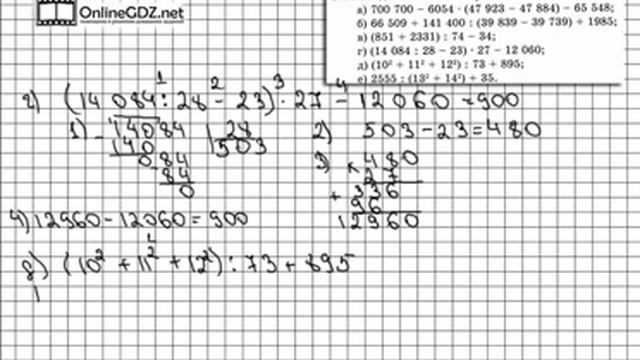 OnlineGDZ.net
а) 700 700 – 6054 · (47 923 – 47 884) – 65 548;
б) 66 509 + 141 400 : (39 839 – 39 739) + 1985;
в) (851 + 2331) : 74 – 34;
г) (14 084 : 28 – 23) · 27 – 12 060;
д) (10² + 11² + 12²) : 73 + 895;
е) 2555 : (13² + 14²) + 35.
1 2 3 4
г) (14 084 : 28 – 23) · 27 – 12060 = 900
1) 14084 | 28
140 503
084
84
0
2) 503 – 23 = 480
3) × 480
27
+ 336
96
12960
4) 12960 – 12060 = 900
1
д) (10² + 11² + 12²) : 73 + 895